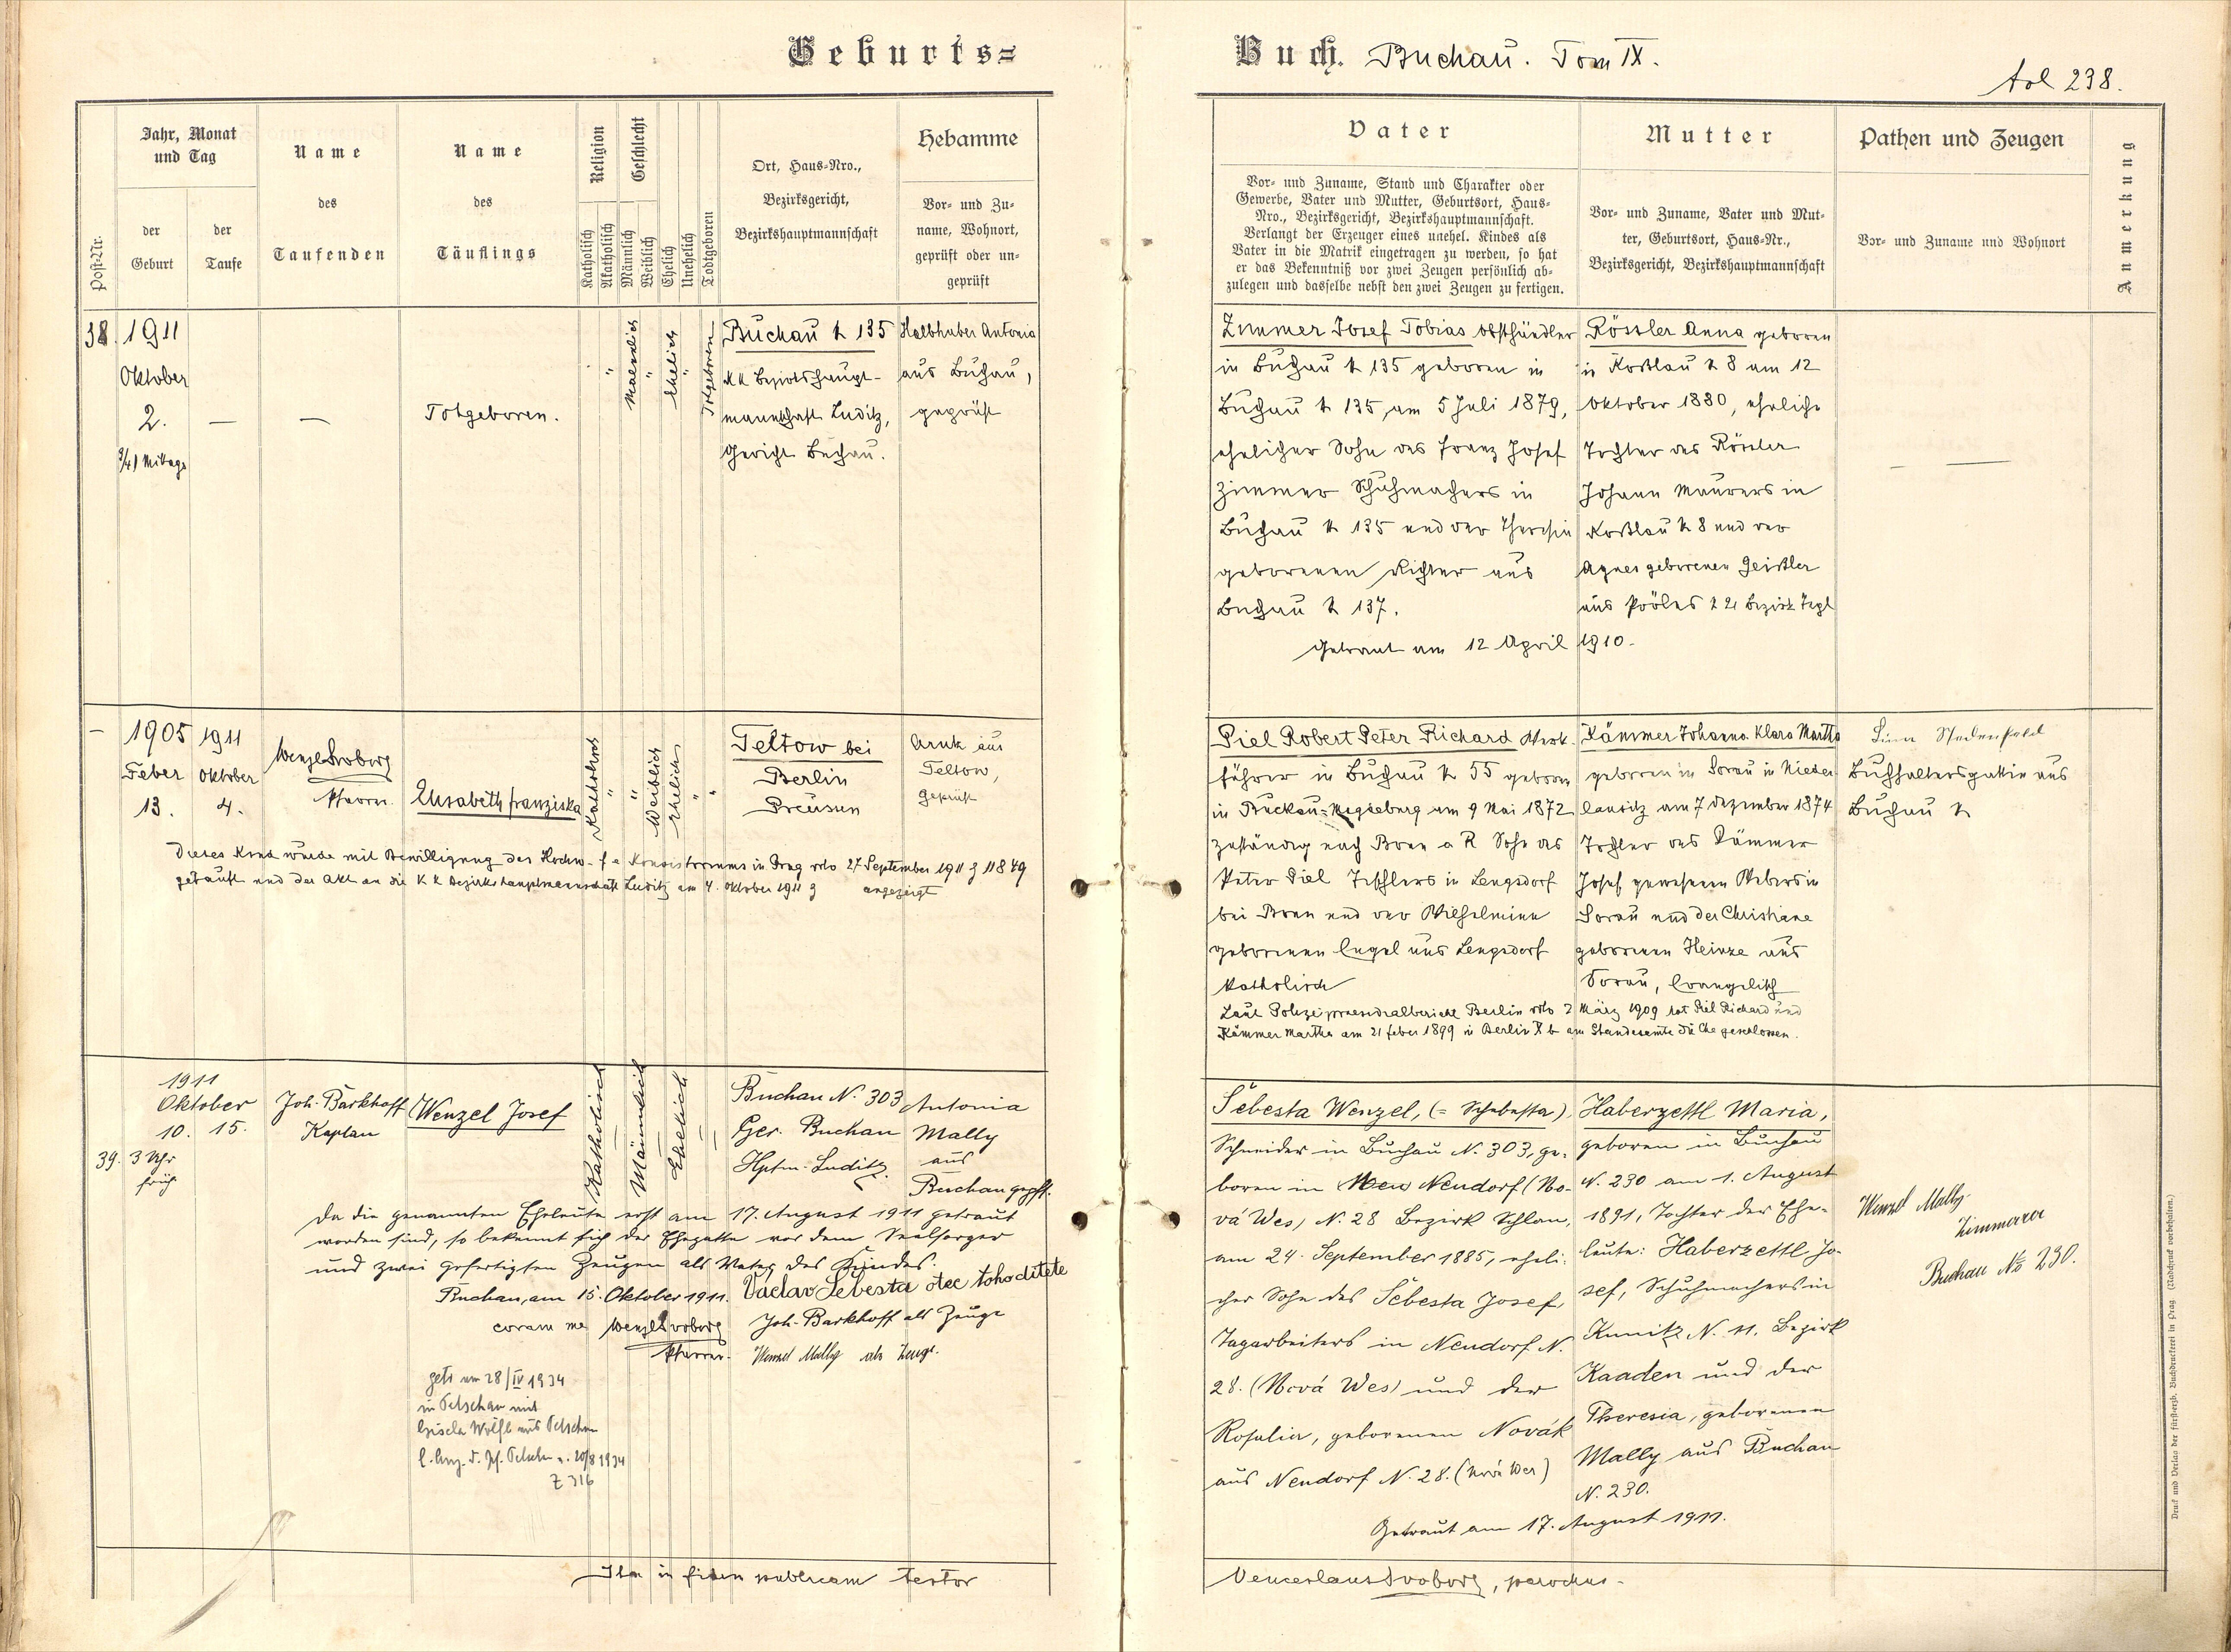 Geburts=
Buch. Buchau. Tom IX.
fol 238.
Post-Nr.
Jahr, Monat
und Tag
der
Geburt
der
Taufe
Name
des
Taufenden
Name
des
Täuflings
Religion
Katholisch
Akatholisch
Geschlecht
Männlich
Weiblich
Ehelich
Unehelich
Todtgeboren
Ort, Haus=Nro.,
Bezirksgericht,
Bezirkshauptmannschaft
Hebamme
Vor= und Zu=
name, Wohnort,
geprüft oder un=
geprüft
Vater
Vor= und Zuname, Stand und Charakter oder
Gewerbe, Vater und Mutter, Geburtsort, Haus=
Nro., Bezirksgericht, Bezirkshauptmannschaft.
Verlangt der Erzeuger eines unehel. Kindes als
Vater in die Matrik eingetragen zu werden, so hat
er das Bekenntniß vor zwei Zeugen persönlich ab=
zulegen und dasselbe nebst den zwei Zeugen zu fertigen.
Mutter
Vor= und Zuname, Vater und Mut=
ter, Geburtsort, Haus=Nr.,
Bezirksgericht, Bezirkshauptmannschaft
Pathen und Zeugen
Vor= und Zuname und Wohnort
Anmerkung
38.
1911
Oktober
2.
3/4 1 Mittags
—
—
Totgeboren.
"
Maenlich
"
Ehelich
"
Totgeboren
Buchau N 135
KK Bezirkshaupt-
mannschaft Luditz,
Gericht Buchau.
Halbhuber Antonia
aus Buchau,
geprüft
Zimmer Josef Tobias Obsthändler
in Buchau N 135 geboren in
Buchau N 135, am 5 Juli 1879,
ehelicher Sohn des Franz Josef
Zimmer Schuhmachers in
Buchau N 135 und der Theresia
geborenen Richter aus
Buchau N 137.
Rössler Anna geboren
in Koßlau N 8 am 12
Oktober 1880, eheliche
Tochter des Rössler
Johann Maurers in
Koßlau N 8 und der
Agnes geborenen Geißler
aus N 21 Bezirk
Getraut am 12 April 1910.
— —
—
1905
Feber
13.
1911
Oktober
4.
Wenzel Svoboda
Pfarrer.
Elisabeth Franziska
Katholisch
"
"
Weiblich
Ehelich
"
"
Teltow bei
Berlin
Preusen
aus
Teltow,
Geprüft
Dieses Kind wurde mit Bewilligung des Hochw. f e Konsistoriums in Prag vdo 27 September 1911 Z 11849
getauft und der Akt an die K K Bezirkshauptmannschaft Luditz am 4. Oktober 1911 Z angezeigt
Piel Robert Peter Richard Werk-
führer in Buchau N 55 geboren
in Buckau=Magdeburg am 9 Mai 1872
zuständig nach Bonn a R Sohn des
Peter Piel Tischlers in Lengsdorf
bei Bonn und der Wilhelmine
geborenen Engel aus Lengsdorf
katholisch
Kämmer Johanna Klara Martha
geboren in Sorau in Nieder
lausitz am 7 Dezember 1874
Tochter des Kämmer
Josef gewesenen Webers in
Sorau und der Christiane
geborenen Heinze aus
Sorau, Evangelisch
Laut Polizeipraesidialbericht Berlin vdo 2 März 1909 hat Piel Richard und
Kämmer Martha am 21 Feber 1899 in Berlin X b am Standesamte die Ehe geschlossen.
Buchhaltersgattin aus
Buchau N
39.
1911
Oktober
10. 15.
3 Uhr
früh
Joh. Barkhoff
Kaplan
Wenzel Josef
Katholisch
Männlich
Ehelich
Buchau N. 303
Ger. Buchau
Hptm. Luditz.
Antonia
Mally
aus
Buchau gepft.
Da die genannten Eheleute erst am 17. August 1911 getraut
worden sind, so bekennt sich der Ehegatte vor dem Seelsorger
und zwei gefertigten Zeugen als Vater des Kindes.
Buchau, am 15. Oktober 1911. Václav Šebesta otec tohoditěte
coram me Wenzel Svoboda Joh. Barkhoff als Zeuge
Pfarrer. Wenzel Mally als Zeuge.
getr am 28/IV 1934
in Petschau mit
Gisela Wölfl aus Petschau
Petschau v. 20/8 1934
Z 316
Šebesta Wenzel, (= Schebesta),
Schneider in Buchau N. 303, ge-
boren in Neudorf (No-
vá Wes) N. 28 Bezirk Schlan,
am 24. September 1885, eheli-
cher Sohn des Šebesta Josef,
Tagarbeiters in Neudorf N.
28. (Nová Wes) und der
Rosalia, geborenen Novák
aus Neudorf N. 28. (Nová Wes)
Haberzettl Maria,
geboren in Buchau
N. 230 am 1. August
1891, Tochter der Ehe-
leute: Haberzettl Jo-
sef, Schuhmachers in
Kunitz N. 11. Bezirk
Kaaden und der
Theresia, geborenen
Mally aus Buchau
N. 230.
Getraut am 17. August 1911.
Wenzel Mally
Zimmerer
Buchau No 230.
in fidem publicam testor
Venceslaus Svoboda, parochus.
Druck und Verlag der fürsterzb. Buchdruckerei in Prag. (Nachdruck vorbehalten.)